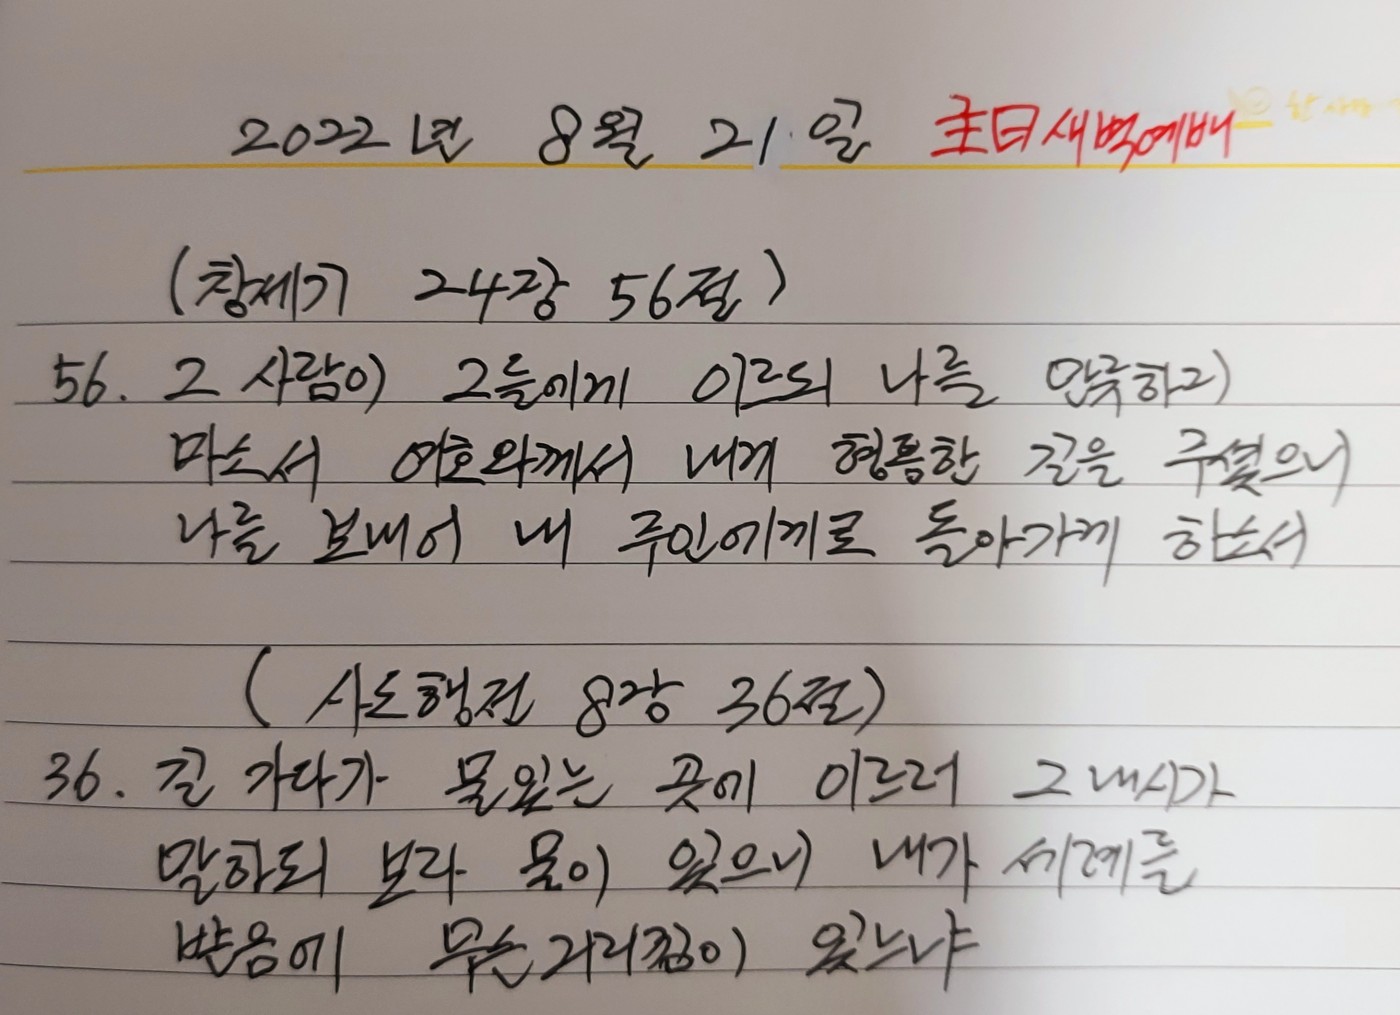 2022년 8월 21일 主日새벽예배
(창세기 24장 56절)
56. 그 사람이 그들에게 이르되 나를 만류하지
마소서 여호와께서 내게 형통한 길을 주셨으니
나를 보내어 내 주인에게로 돌아가게 하소서
(사도행전 8장 36절)
36. 길 가다가 물있는 곳에 이르러 그 내시가
말하되 보라 물이 있으니 내가 세례를
받음에 무슨 거리낌이 있느냐